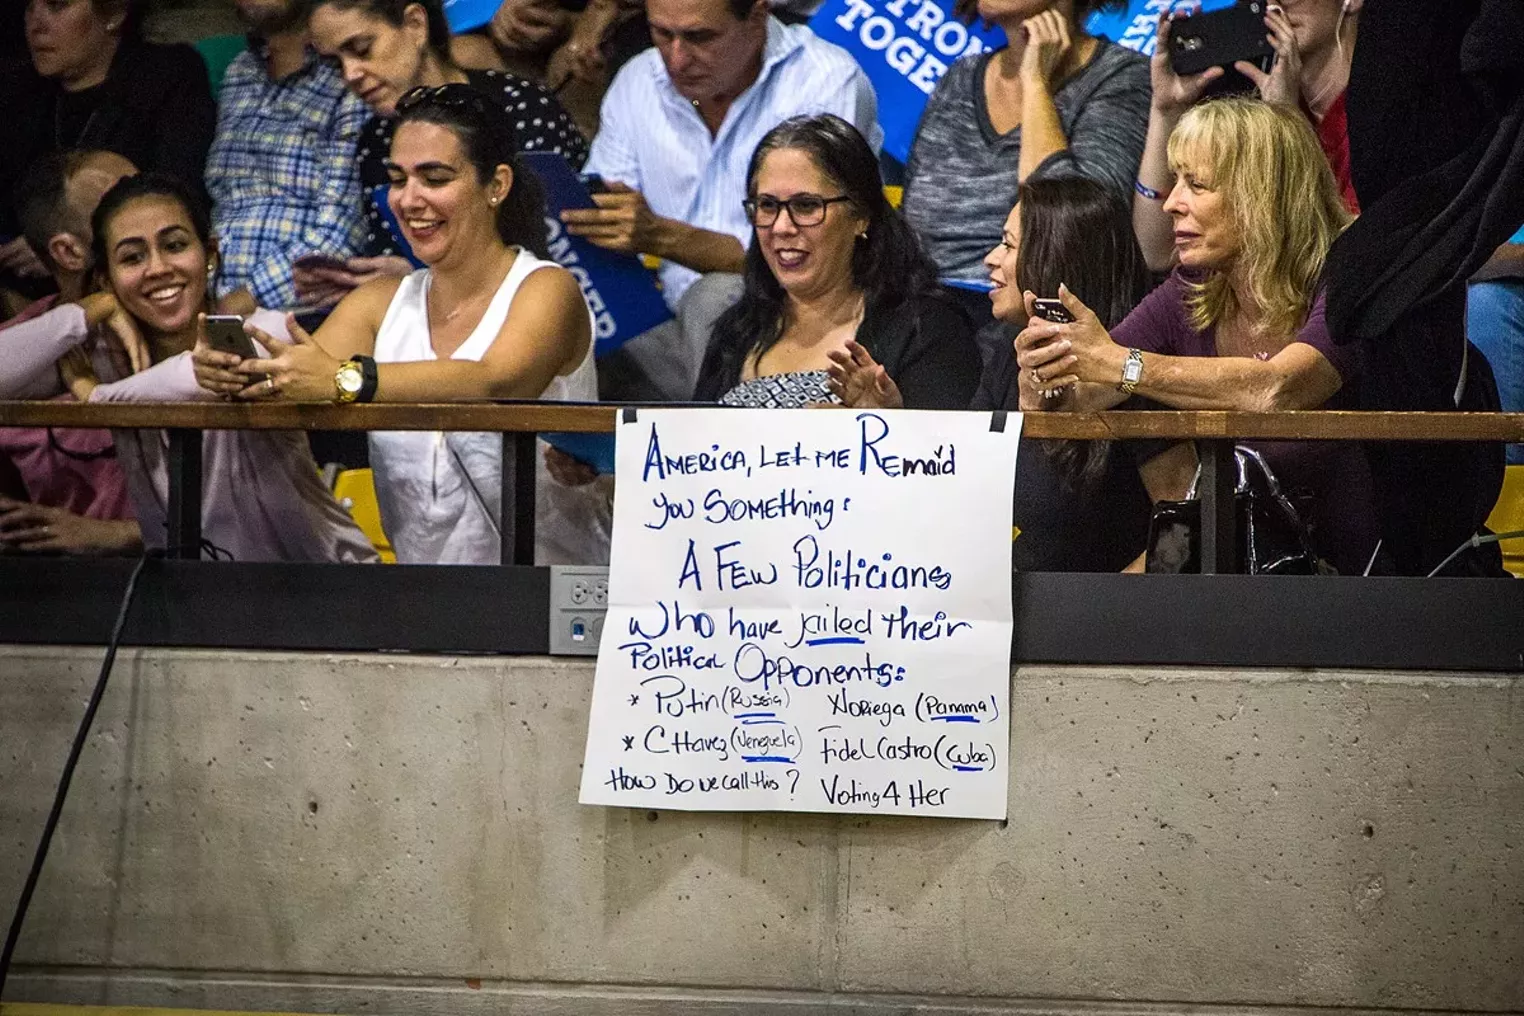 STRON
TOGE
ONGER
AMERICA, LET ME REmaid
you Something:
A Few Politicians
who have jailed their
Political Opponents:
* Putin (Russia) Noriega (Panama)
* CHavez (Venezuela) Fidel Castro (Cuba)
How Do we call this? Voting 4 Her